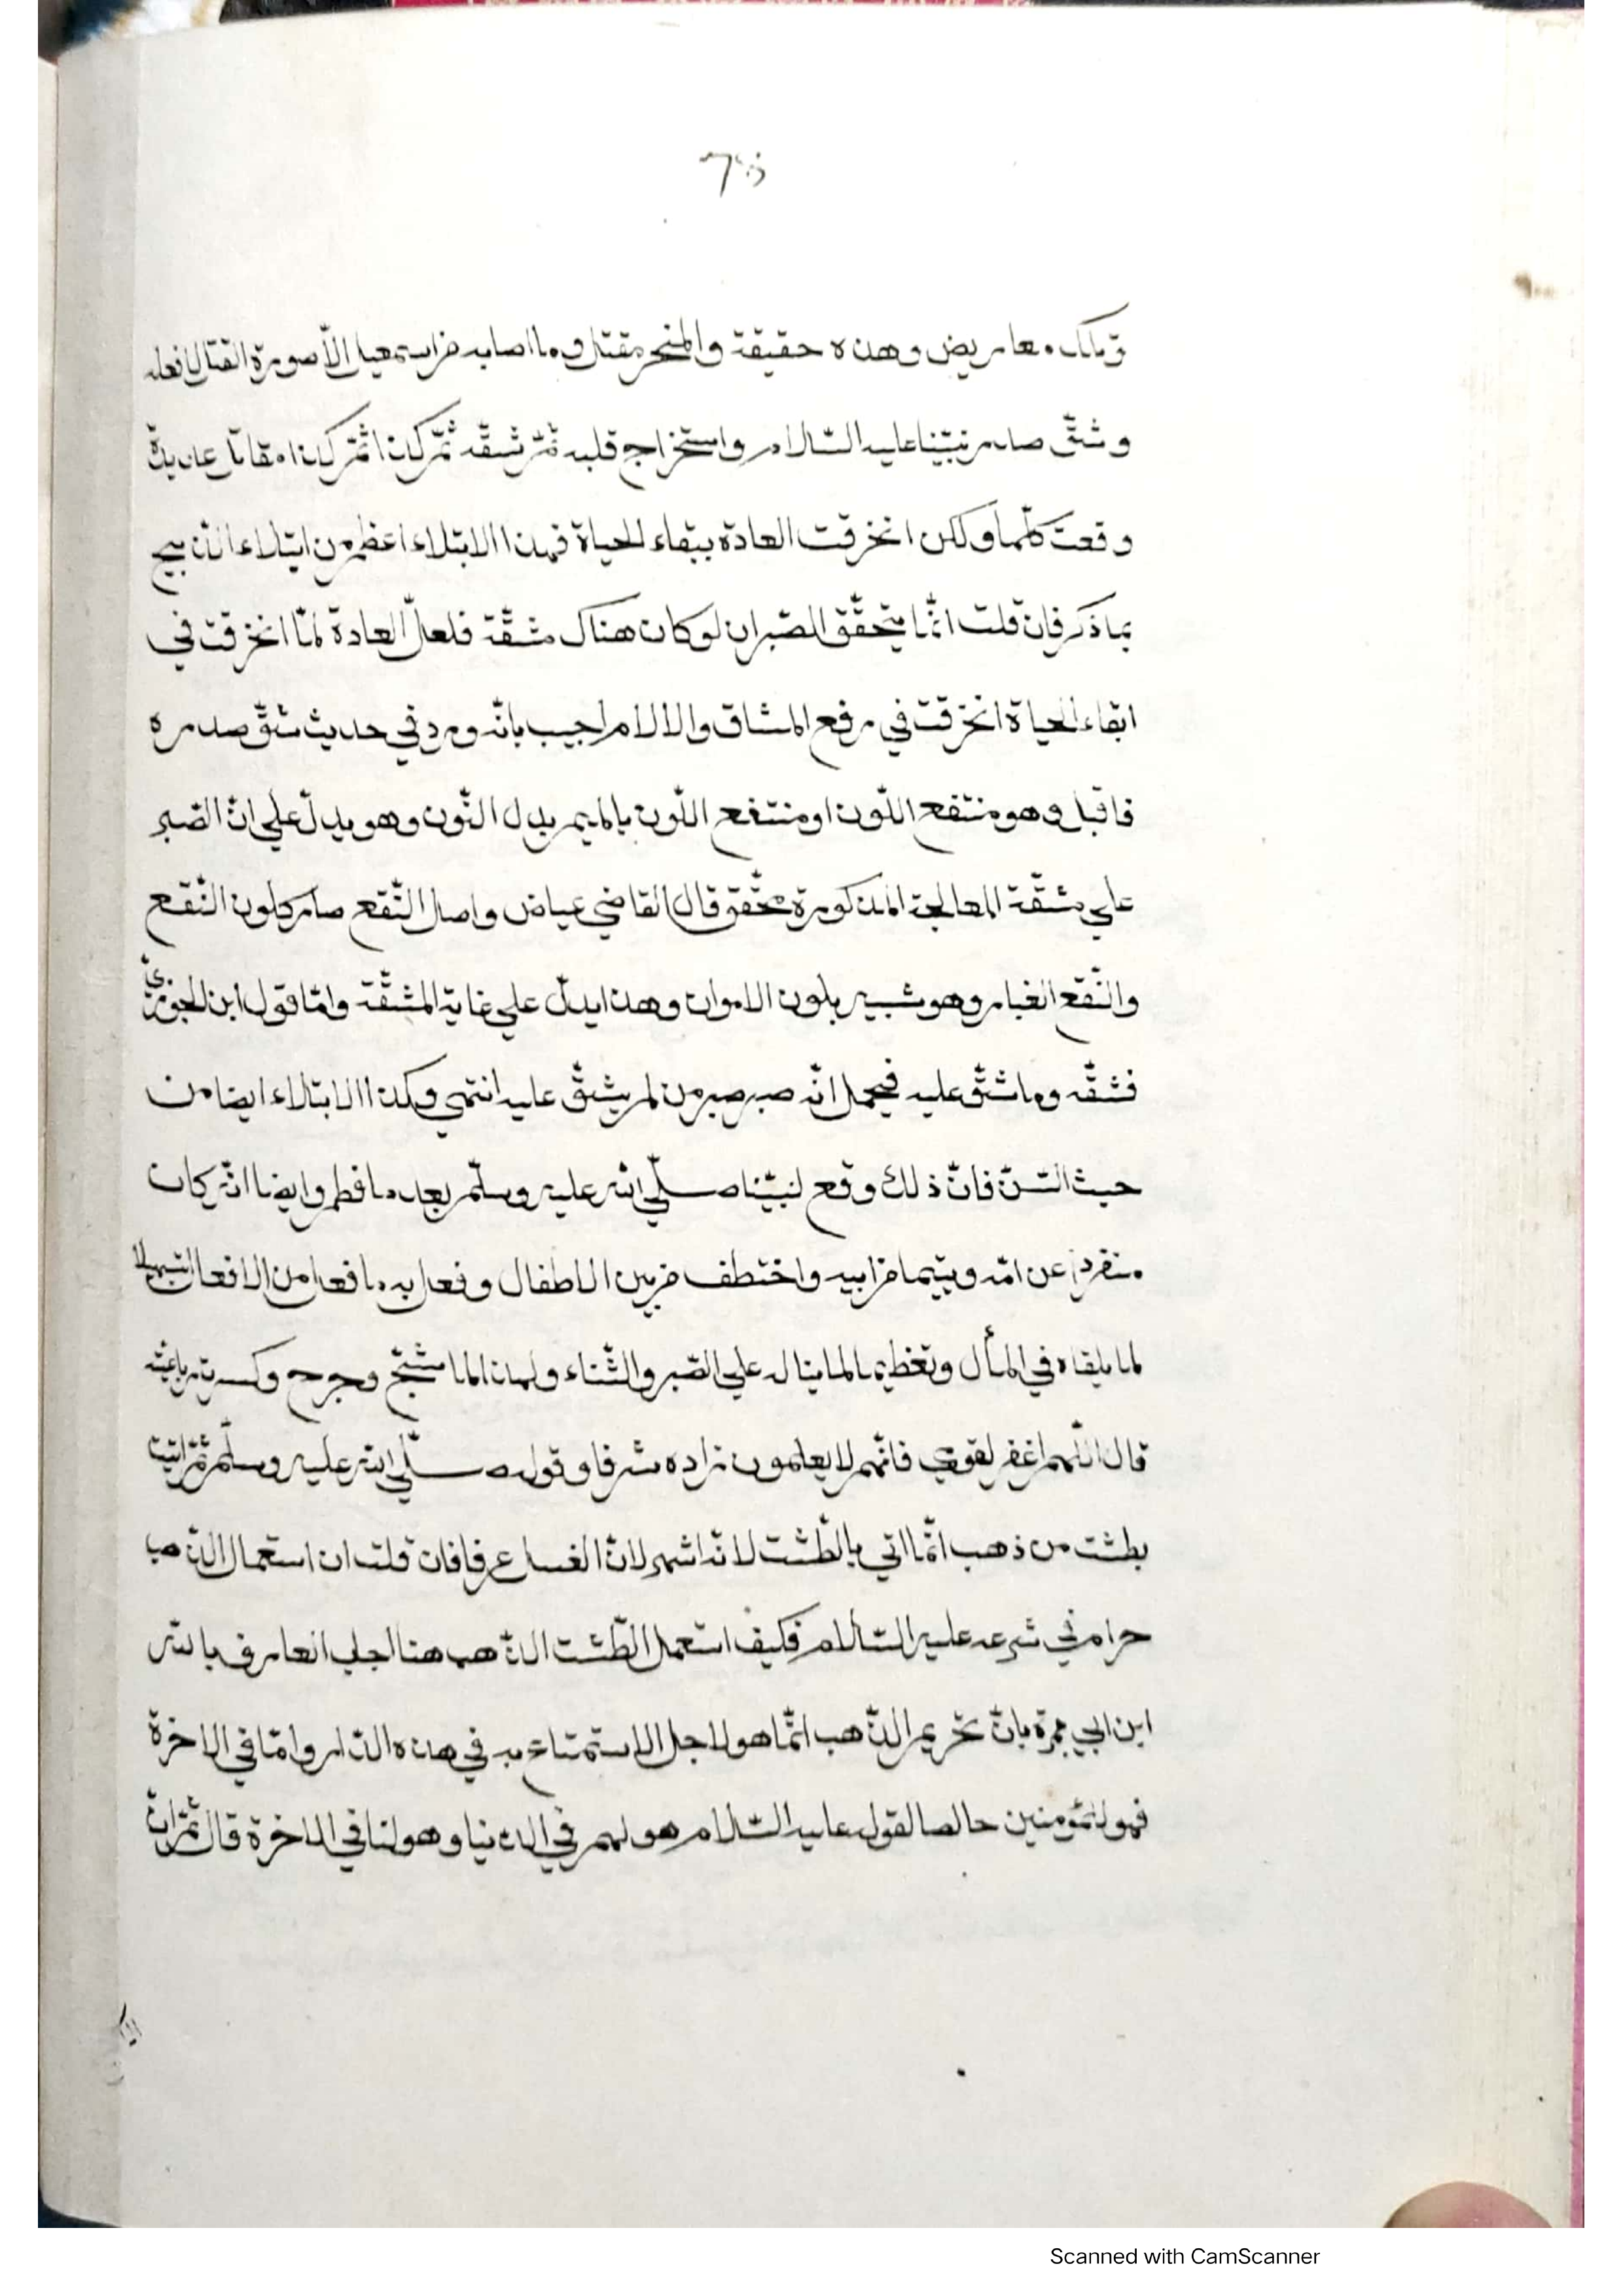 وتلك معاريض وهذه حقيقة والمنحر مقتل وما اصابه من اسمعيل الّا صورة القتل لا فعله
وشقّ صدر نبيّنا عليه السّلام واستخراج قلبه ثمّ شقّه ثمّ كذا ثمّ كذا مقاتل عديدة
وقعت كلّها ولكن انخرقت العادة ببقاء الحياة فهذا الابتلاء اعظم من ابتلاء الذبيح
بما ذكر فان قلت انّما يتحقّق الصّبر ان لو كان هناك مشقّة فلعلّ العادة لمّا انخرقت في
ابقاء الحياة انخرقت في رفع المشاق والالام اجيب بانّه ورد في حديث شقّ صدره
فاقبل وهو منتقع اللّون او منتقع اللّون بالميم بدل النّون وهو يدلّ علي انّ الصّبر
علي مشقّة المعالجة المذكورة محقّق قال القاضي عياض واصل النّقع صار كلون النّقع
والنّقع الغبار وهو شبيه بلون الاموان وهذا يدلّ علي غاية المشقّة وامّا قول ابن الجوزيّ
فشقّه وما شقّ عليه فيحمل انّه صبر صبر من لم يشقّ عليه انتهي وكذا الابتلاء ايضا من
حيث السّنّ فانّ ذلك وقع لنبيّنا صلّي الله عليه وسلّم بعد ما فطم وايضا انّه كان
منفردا عن امّه ويتيما من ابيه واختطف من بين الاطفال وفعل به ما فعل من الافعال تسهيلا
لما يلقاه في المأل وتعظيما لما ينال علي الصّبر والثّناء ولهذا لما شجّ وجرح وكسرت رباعيته
قال اللّهم اغفر لقومي فانّهم لا يعلمون زاده شرفا وقوله صلّي الله عليه وسلّم ثمّ اتيت
بطشت من ذهب انّما اتي بالطّشت لانّه اشهر لات الغسل عرفا فان قلت ان استعمال الذّهب
حرام في شرعه عليه السّلام فكيف استعمل الطّشت الذّهب هنا اجاب العارف بالله
ابن ابي جمرة بانّ تحريم الذّهب انّما هو لاجل الاستمتاع به في هذه الدّار وامّا في الاخرة
فهو للمؤمنين خالصا لقوله عليه السّلام هو لهم في الدنيا وهو لنا في الاخرة قال ثمّ انّ